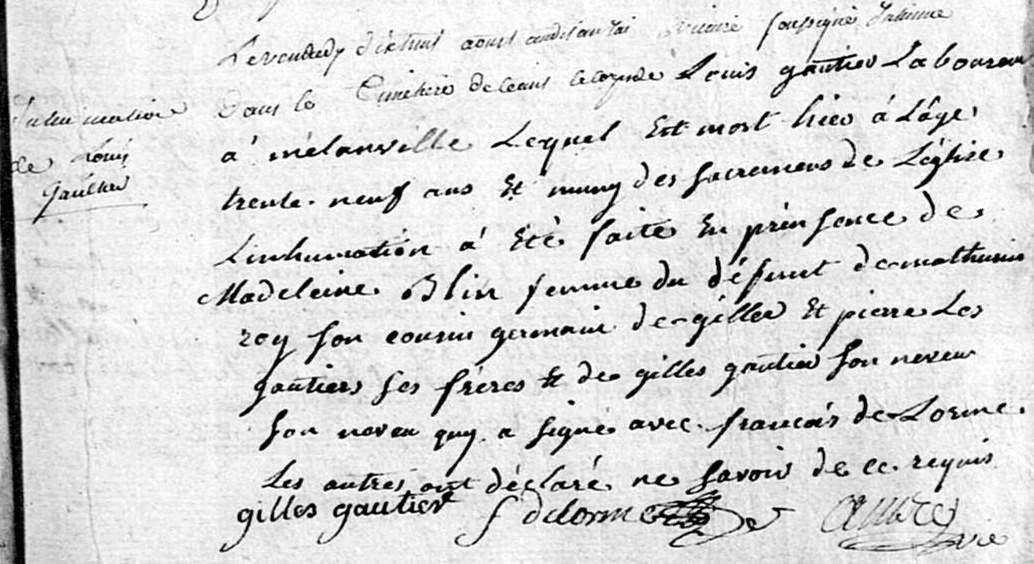 Le vendredy dixhuit aoust audit an j'ai vicaire soussigné Inhumé
Inhumation
de Louis
Gaultier
dans le Cimetiere de ceans le corps de Louis gautier Laboureur
à mélanville Lequel Est mort hier à L'âge
trente-neuf ans Et muny des sacremens de L'église
L'inhumation à Eté faite En prensence de
Madeleine Blin femme du défunt de mathurin
roy son cousin germain de gilles Et pierre Les
gautiers ses frères Et de gilles gautier son neveu
son neveu quy a signé avec françois de Lorme
Les autres ont déclaré ne savoir de ce requis
gilles gautier f delorme
vic